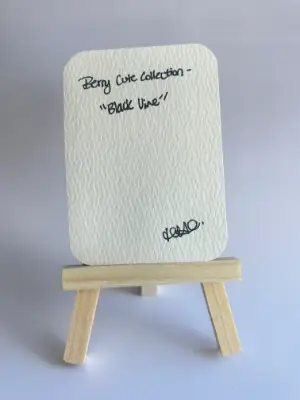 Berry Cute Collection -
"Black Vine"